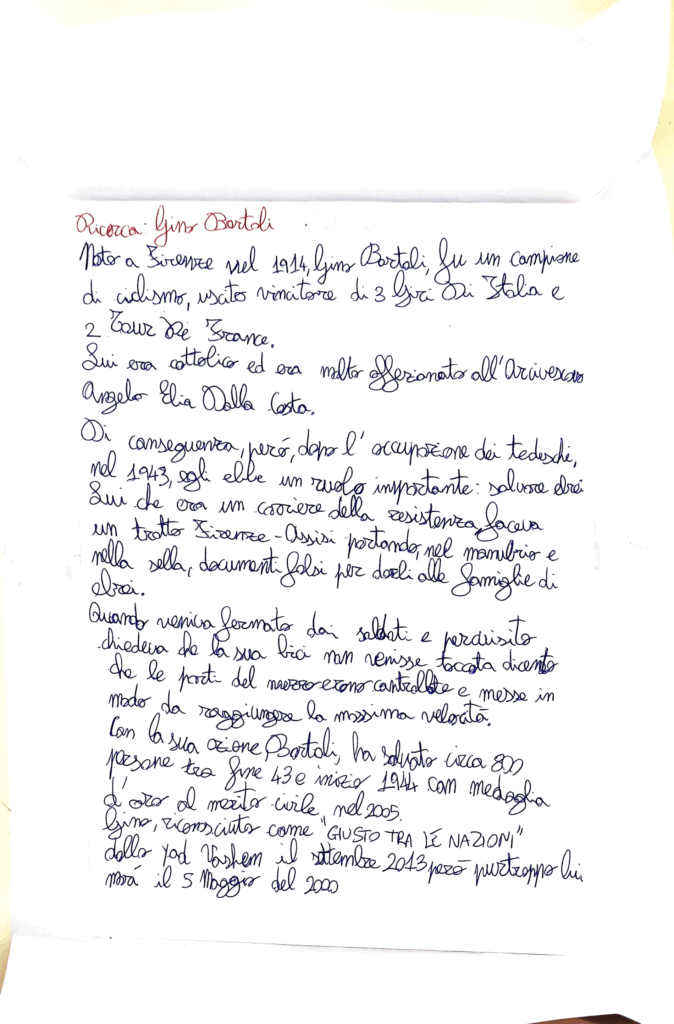 Ricerca: Gino Bartoli
Nato a Firenze nel 1914, Gino Bartoli, fu un campione
di ciclismo, uscito vincitore di 3 Giri Di Italia e
2 Tour De France.
Lui era cattolico ed era molto affezionato all'Arcivescovo
Angelo Elia Dalla Costa.
Di conseguenza, però, dopo l'occupazione dei tedeschi,
nel 1943, egli ebbe un ruolo importante: salvare ebrei
Lui che era un corriere della resistenza, faceva
un tratto Firenze-Assisi portando, nel manubrio e
nella sella, documenti falsi per darli alle famiglie di
ebrei.
Quando veniva fermato dai soldati e perquisito
chiedeva che la sua bici non venisse toccata dicento
che le parti del mezzo erono controllate e messe in
modo da raggiungere la massima velocità.
Con la sua azione Bartoli, ha salvato circa 800
persone tra fine 43 e inizio 1944 con medaglia
d'oro al merito civile, nel 2005.
Gino, riconosciuto come "GIUSTO TRA LE NAZIONI"
dallo Yad Vashem il settembre 2013 però purtroppo lui
morì il 5 Maggio del 2000